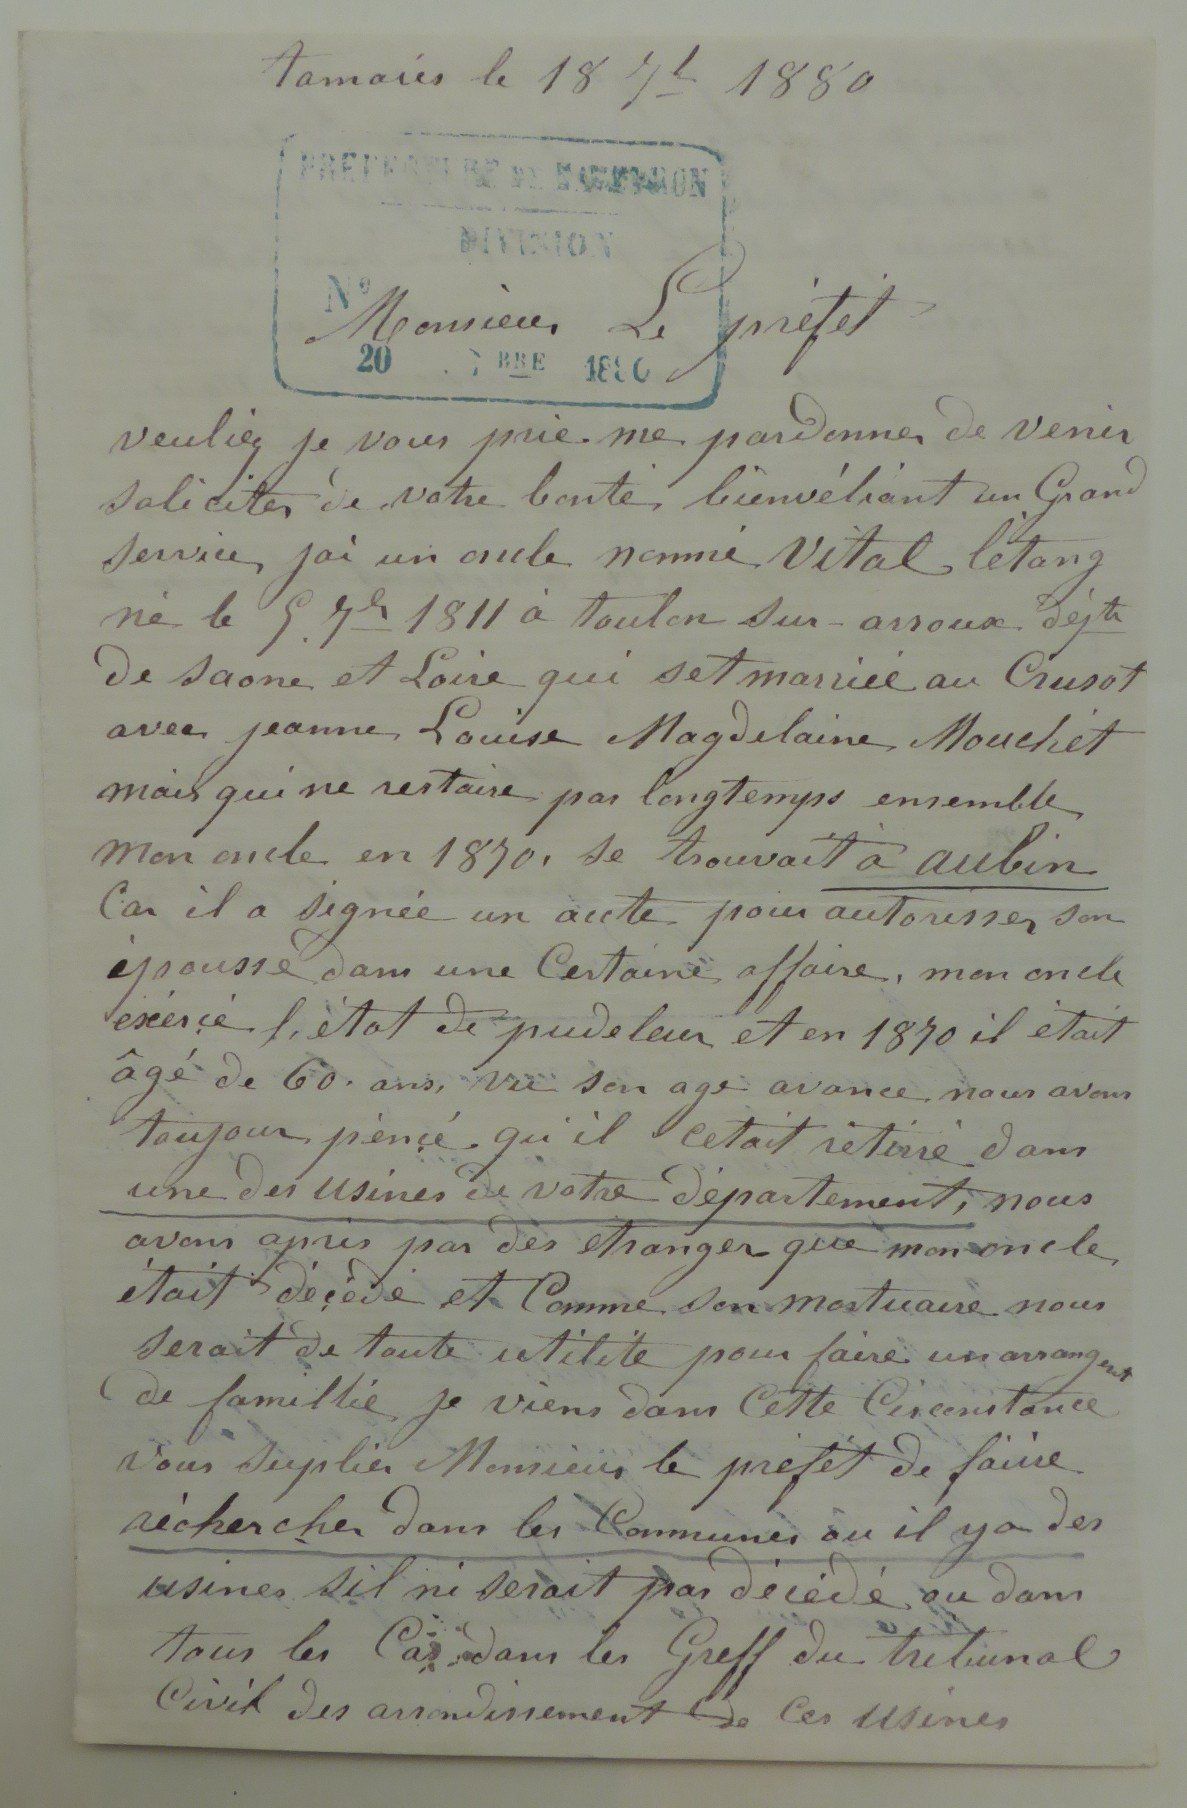 tamaiës le 18 7bre 1880
PREFECTURE DE L'AVEYRON
DIVISION
N°
Monsieur Le préfet
20 7BRE 1880
veuliez je vous prie me pardonner de venir
saliciter de votre bonté bienvéliant un Grand
service, jai un oncle nommé Vital létang
né le 5 7bre 1811 à toulon sur-arroux déptt
de saone et Loire qui set marriéé au Crusot
avec jeanne Louise Magdelaine Mouchet
mais qui ne restaire pas longtemps ensemble
mon oncle en 1870. se trouvait à aubin
Car il a signée un aucte pour autorisser son
épousse dans une Certaine affaire, mon oncle
exérçé l'état de pudeleur et en 1870 il était
âgé de 60. ans, vu son age avance nous avons
toujour pençé qu'il cetait retirré dans
une des usines de votre département, nous
avons apris par des etranger que mon oncle
était décédé et Comme son mortuaire nous
serait de toute utilite pour faire un arrangemt
de famillié je viens dans Cette Circonstance
vous suplier Monsieur le préfét de faiire
réchercher dans les Communes ou il y a des
usines sil ni serait pas décédé ou dans
tous les Cas dans les Greff du tribunal
Civil des arrondissement de ces usines